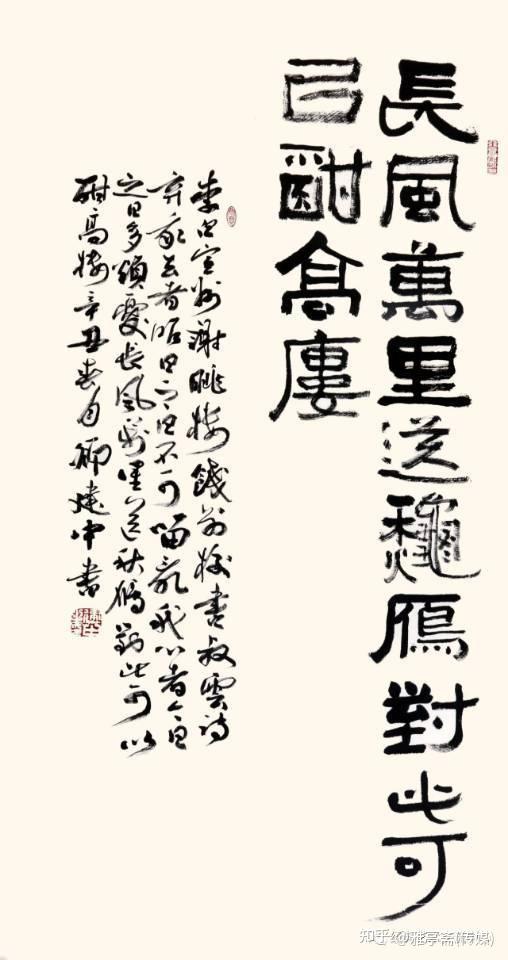 長風萬里送龝鴈對此可
已酣高廔
李白宣州謝朓樓餞别校書叔雲詩
弃我去者昨日之日不可留亂我心者今日
之日多煩憂長風萬里送秋鴈對此可以
酣高樓辛丑春月 中書
知乎 @雅亭斋(传媒)